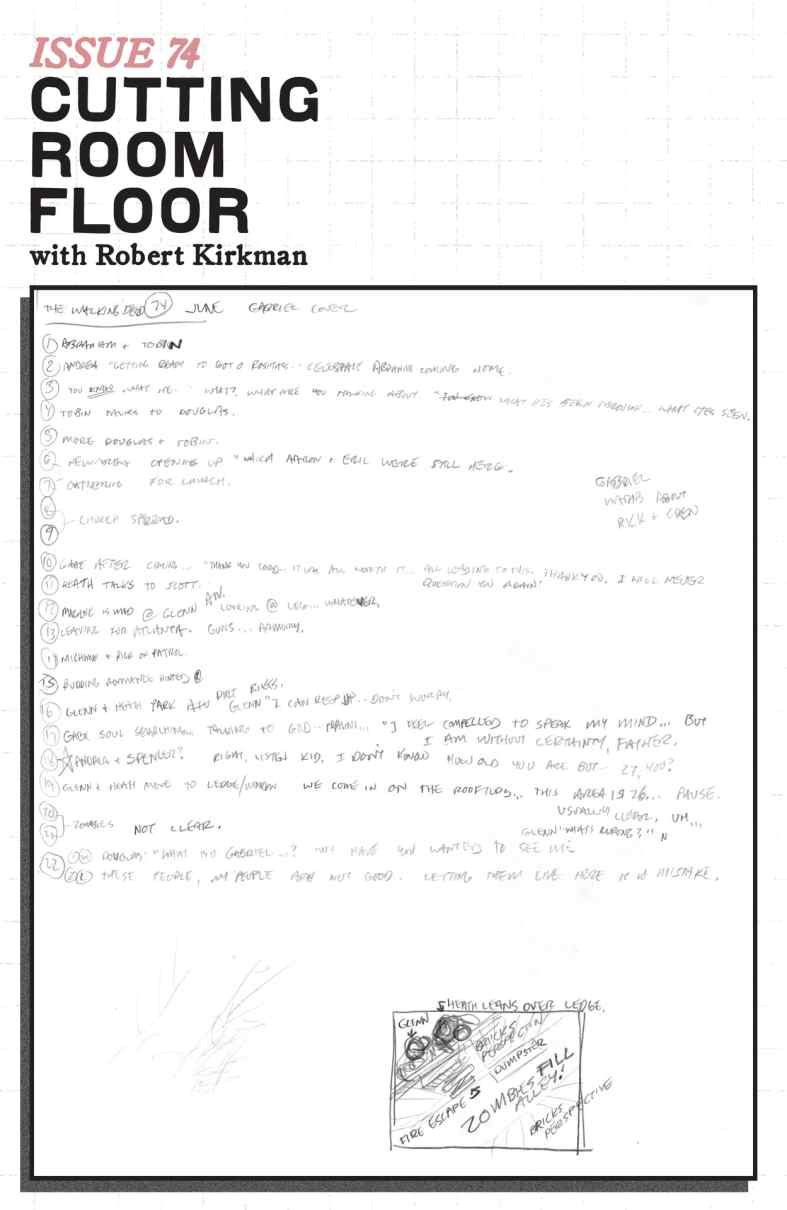 ISSUE 74
CUTTING
ROOM
FLOOR
with Robert Kirkman
THE WALKING DEAD 74 JUNE GABRIEL COVER
1 ABRAHAM + TOBIN
2 ANDREA "GETTING READY TO GO TO CELEBRATE ABRAHAM COMING HOME.
3 YOU KNOW WHAT HE... WHAT? WHAT ARE YOU TALKING ABOUT "YOU KNOW WHAT HE'S BEEN THROUGH... WHAT HE'S SEEN.
4 TOBIN TALKS TO DOUGLAS.
5 MORE DOUGLAS + TOBIN.
6 OPENING UP "WHICH AARON + ERIC WERE STILL HERE.
7 GATHERING FOR CHURCH.
8
CHURCH SPREAD.
9
GABRIEL
ABOUT
RICK + CREW
10 GABE AFTER CHURCH... "THANK YOU LORD... IT WAS ALL WORTH IT... ALL LEADING TO THIS. THANK YOU. I WILL NEVER
QUESTION YOU AGAIN."
11 HEATH TALKS TO SCOTT.
12 MAGGIE IS MAD @ GLENN LOOKING @ WHATEVER.
13 LEAVING FOR ATLANTA. GUNS...
14 MICHONNE + RICK ON PATROL.
15 BUDDING ROMANCE HINTED @
16 GLENN + HEATH PARK DIRT BIKES. GLENN "I CAN KEEP UP... DON'T WORRY.
17 GABE SOUL SEARCHING... TALKING TO GOD... "I FEEL COMPELLED TO SPEAK MY MIND... BUT
I AM WITHOUT CERTAINTY, FATHER.
18 ANDREA + SPENCER? RIGHT, LISTEN KID, I DON'T KNOW HOW OLD YOU ARE BUT... 27, YOU?
19 GLENN + HEATH MOVE TO LEDGE/WINDOW WE COME IN ON THE ROOFTOPS... THIS AREA IS... PAUSE.
USUALLY CLEAR, UM...
20
ZOMBIES NOT CLEAR.
21
GLENN "WHAT'S WRONG?"
22 DOUGLAS "WHAT IS IT GABRIEL...? YOU HAVE YOU WANTED TO SEE ME
THESE PEOPLE, MY PEOPLE ARE NOT GOOD. LETTING THEM LIVE HERE IS A MISTAKE.
HEATH LEANS OVER LEDGE.
GLENN
BRICKS
PERSPECTIVE
DUMPSTER
ZOMBIES FILL
ALLEY!
FIRE ESCAPE
BRICKS
PERSPECTIVE